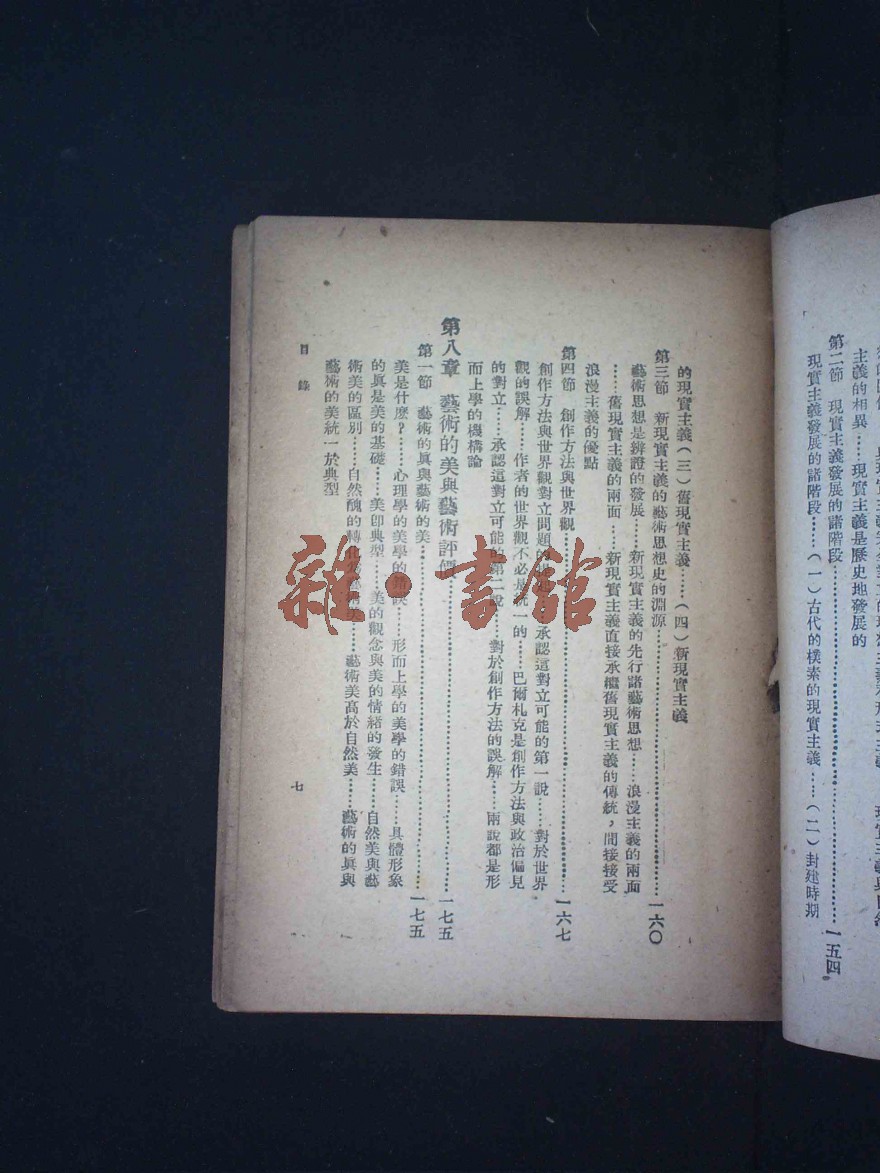 主義的相異……現實主義是歷史地發展的
第二節 現實主義發展的諸階段……一五四
現實主義發展的諸階段……(一)古代的樸素的現實主義……(二)封建時期
的現實主義(三)舊現實主義……(四)新現實主義
第三節 新現實主義的藝術思想史的淵源……一六〇
藝術思想是辨證的發展……新現實主義的先行諸藝術思想……浪漫主義的兩面
……舊現實主義的兩面……新現實主義直接承繼舊現實主義的傳統,間接接受
浪漫主義的優點
第四節 創作方法與世界觀……一六七
創作方法與世界觀對立問題的……承認這對立可能的第一說……對於世界
觀的誤解……作者的世界觀不必是統一的……巴爾札克是創作方法與政治偏見
的對立……承認這對立可能的第二說……對於創作方法的誤解……兩說都是形
而上學的機構論
第八章 藝術的美與藝術評價……一七五
第一節 藝術的眞與藝術的美……一七五
美是什麼?……心理學的美學的錯誤……形而上學的美學的錯誤……具體形象
的眞是美的基礎……美卽典型……美的觀念與美的情緒的發生……自然美與藝
術美的區別……自然醜的轉化爲藝術美……藝術美高於自然美……藝術的眞與
藝術的美統一於典型
目錄
七
雜·書館